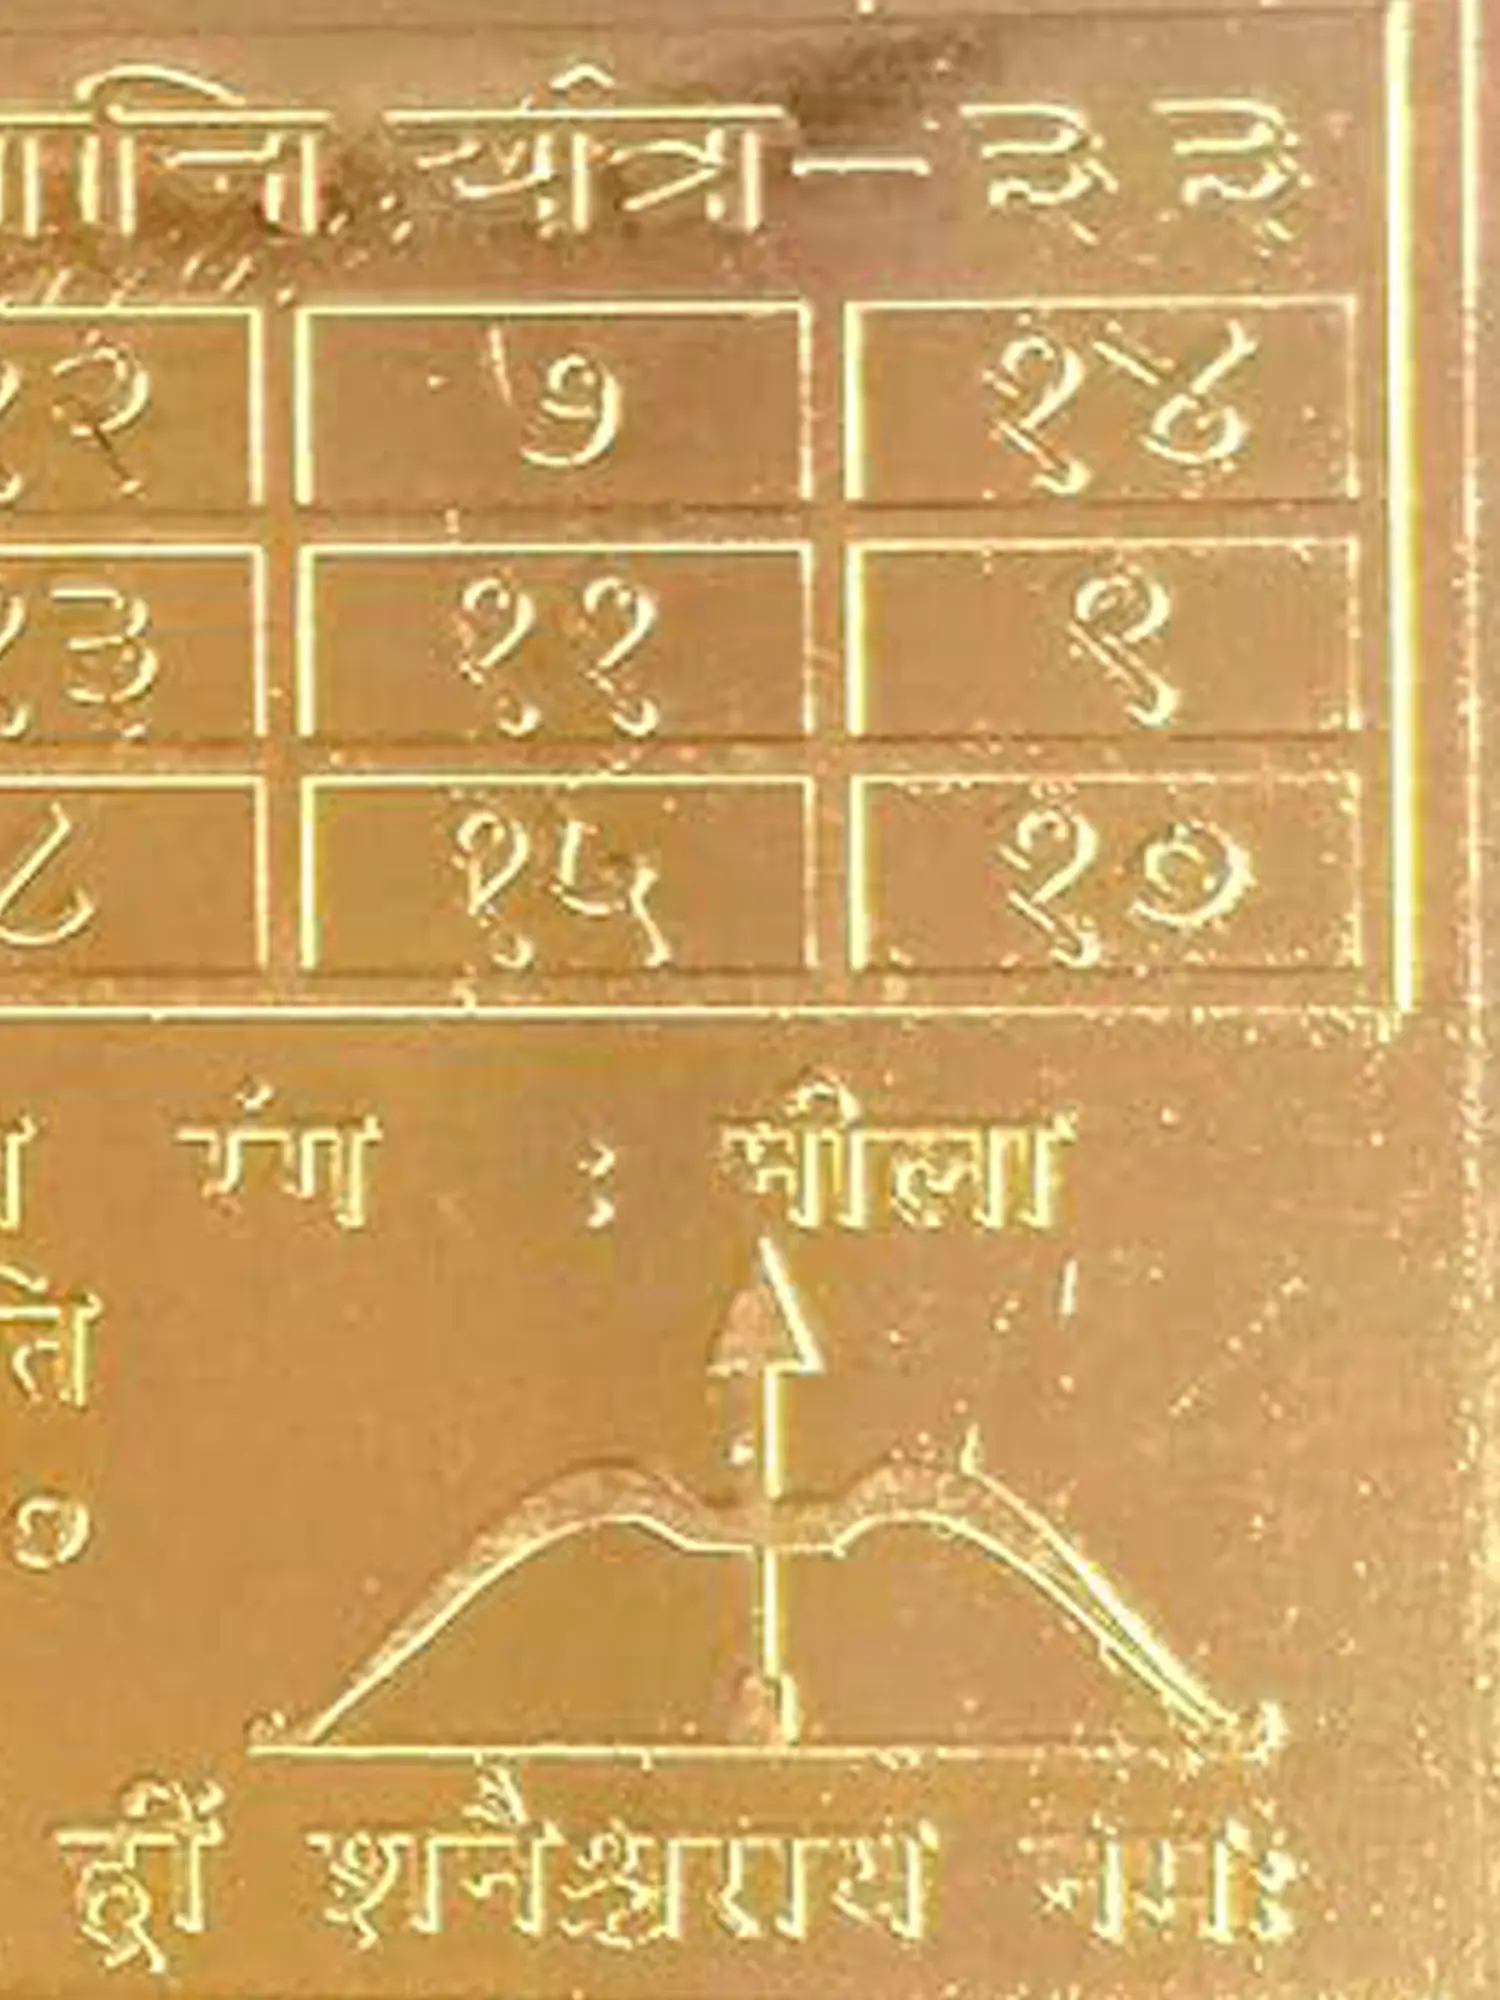 शनि यंत्र-३३
१२ ७ १४
१३ ११ ९
८ १५ १०
रंग : नीला
ति
०
ह्रीं शनैश्चराय नमः